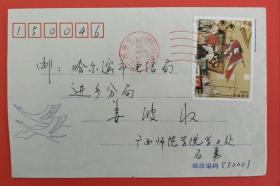 150046
邮：哈尔滨市电信局
进乡分局
姜波 收
广西师范学院学工处
邮政编码 530001